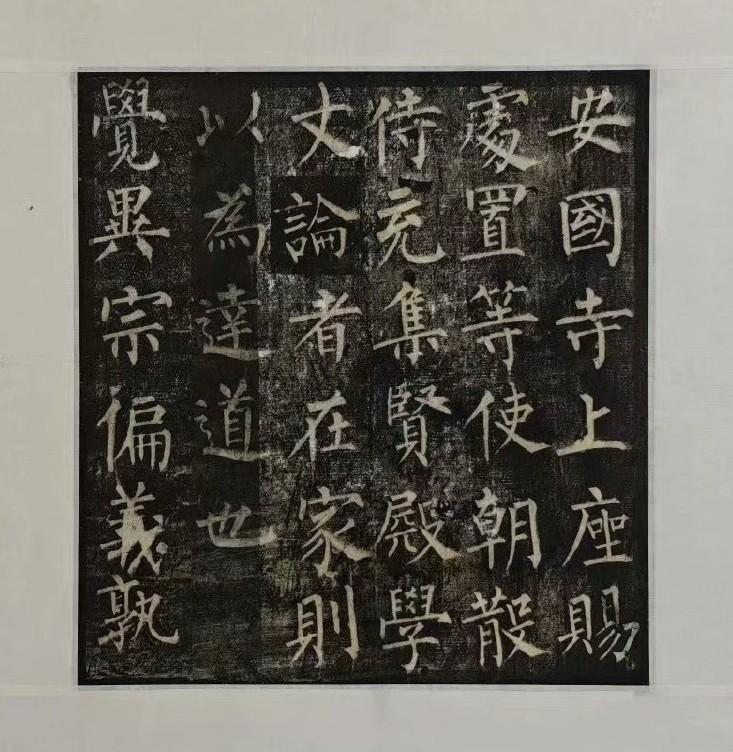 安國寺上座賜
處置等使朝散
侍充集賢殿學
丈論者在家則
以為達道也
覺異宗偏義孰